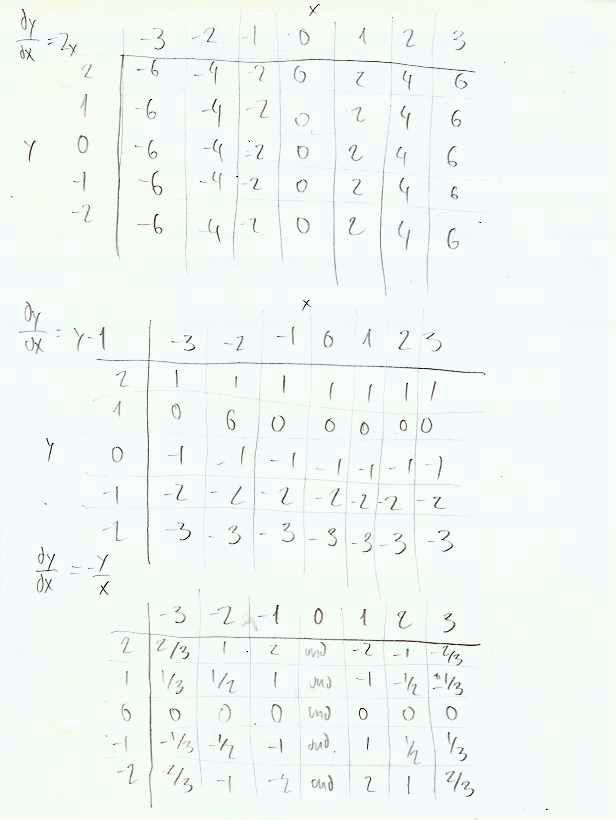 x
dy/dx = 2x -3 -2 -1 0 1 2 3
2 -6 -4 -2 0 2 4 6
1 -6 -4 -2 0 2 4 6
y 0 -6 -4 -2 0 2 4 6
-1 -6 -4 -2 0 2 4 6
-2 -6 -4 -2 0 2 4 6
x
dy/dx = y-1 -3 -2 -1 0 1 2 3
2 1 1 1 1 1 1 1
1 0 0 0 0 0 0 0
y 0 -1 -1 -1 -1 -1 -1 -1
-1 -2 -2 -2 -2 -2 -2 -2
-2 -3 -3 -3 -3 -3 -3 -3
dy/dx = -y/x
-3 -2 -1 0 1 2 3
2 2/3 1 2 und -2 -1 -2/3
1 1/3 1/2 1 und -1 -1/2 -1/3
0 0 0 0 und 0 0 0
-1 -1/3 -1/2 -1 und. 1 1/2 1/3
-2 2/3 -1 -2 und 2 1 2/3